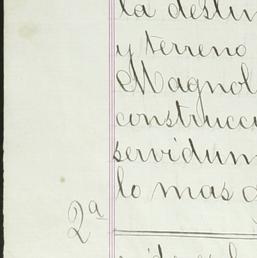 la destin
y terreno
Magnol
construcci
servidum
lo mas
2ª